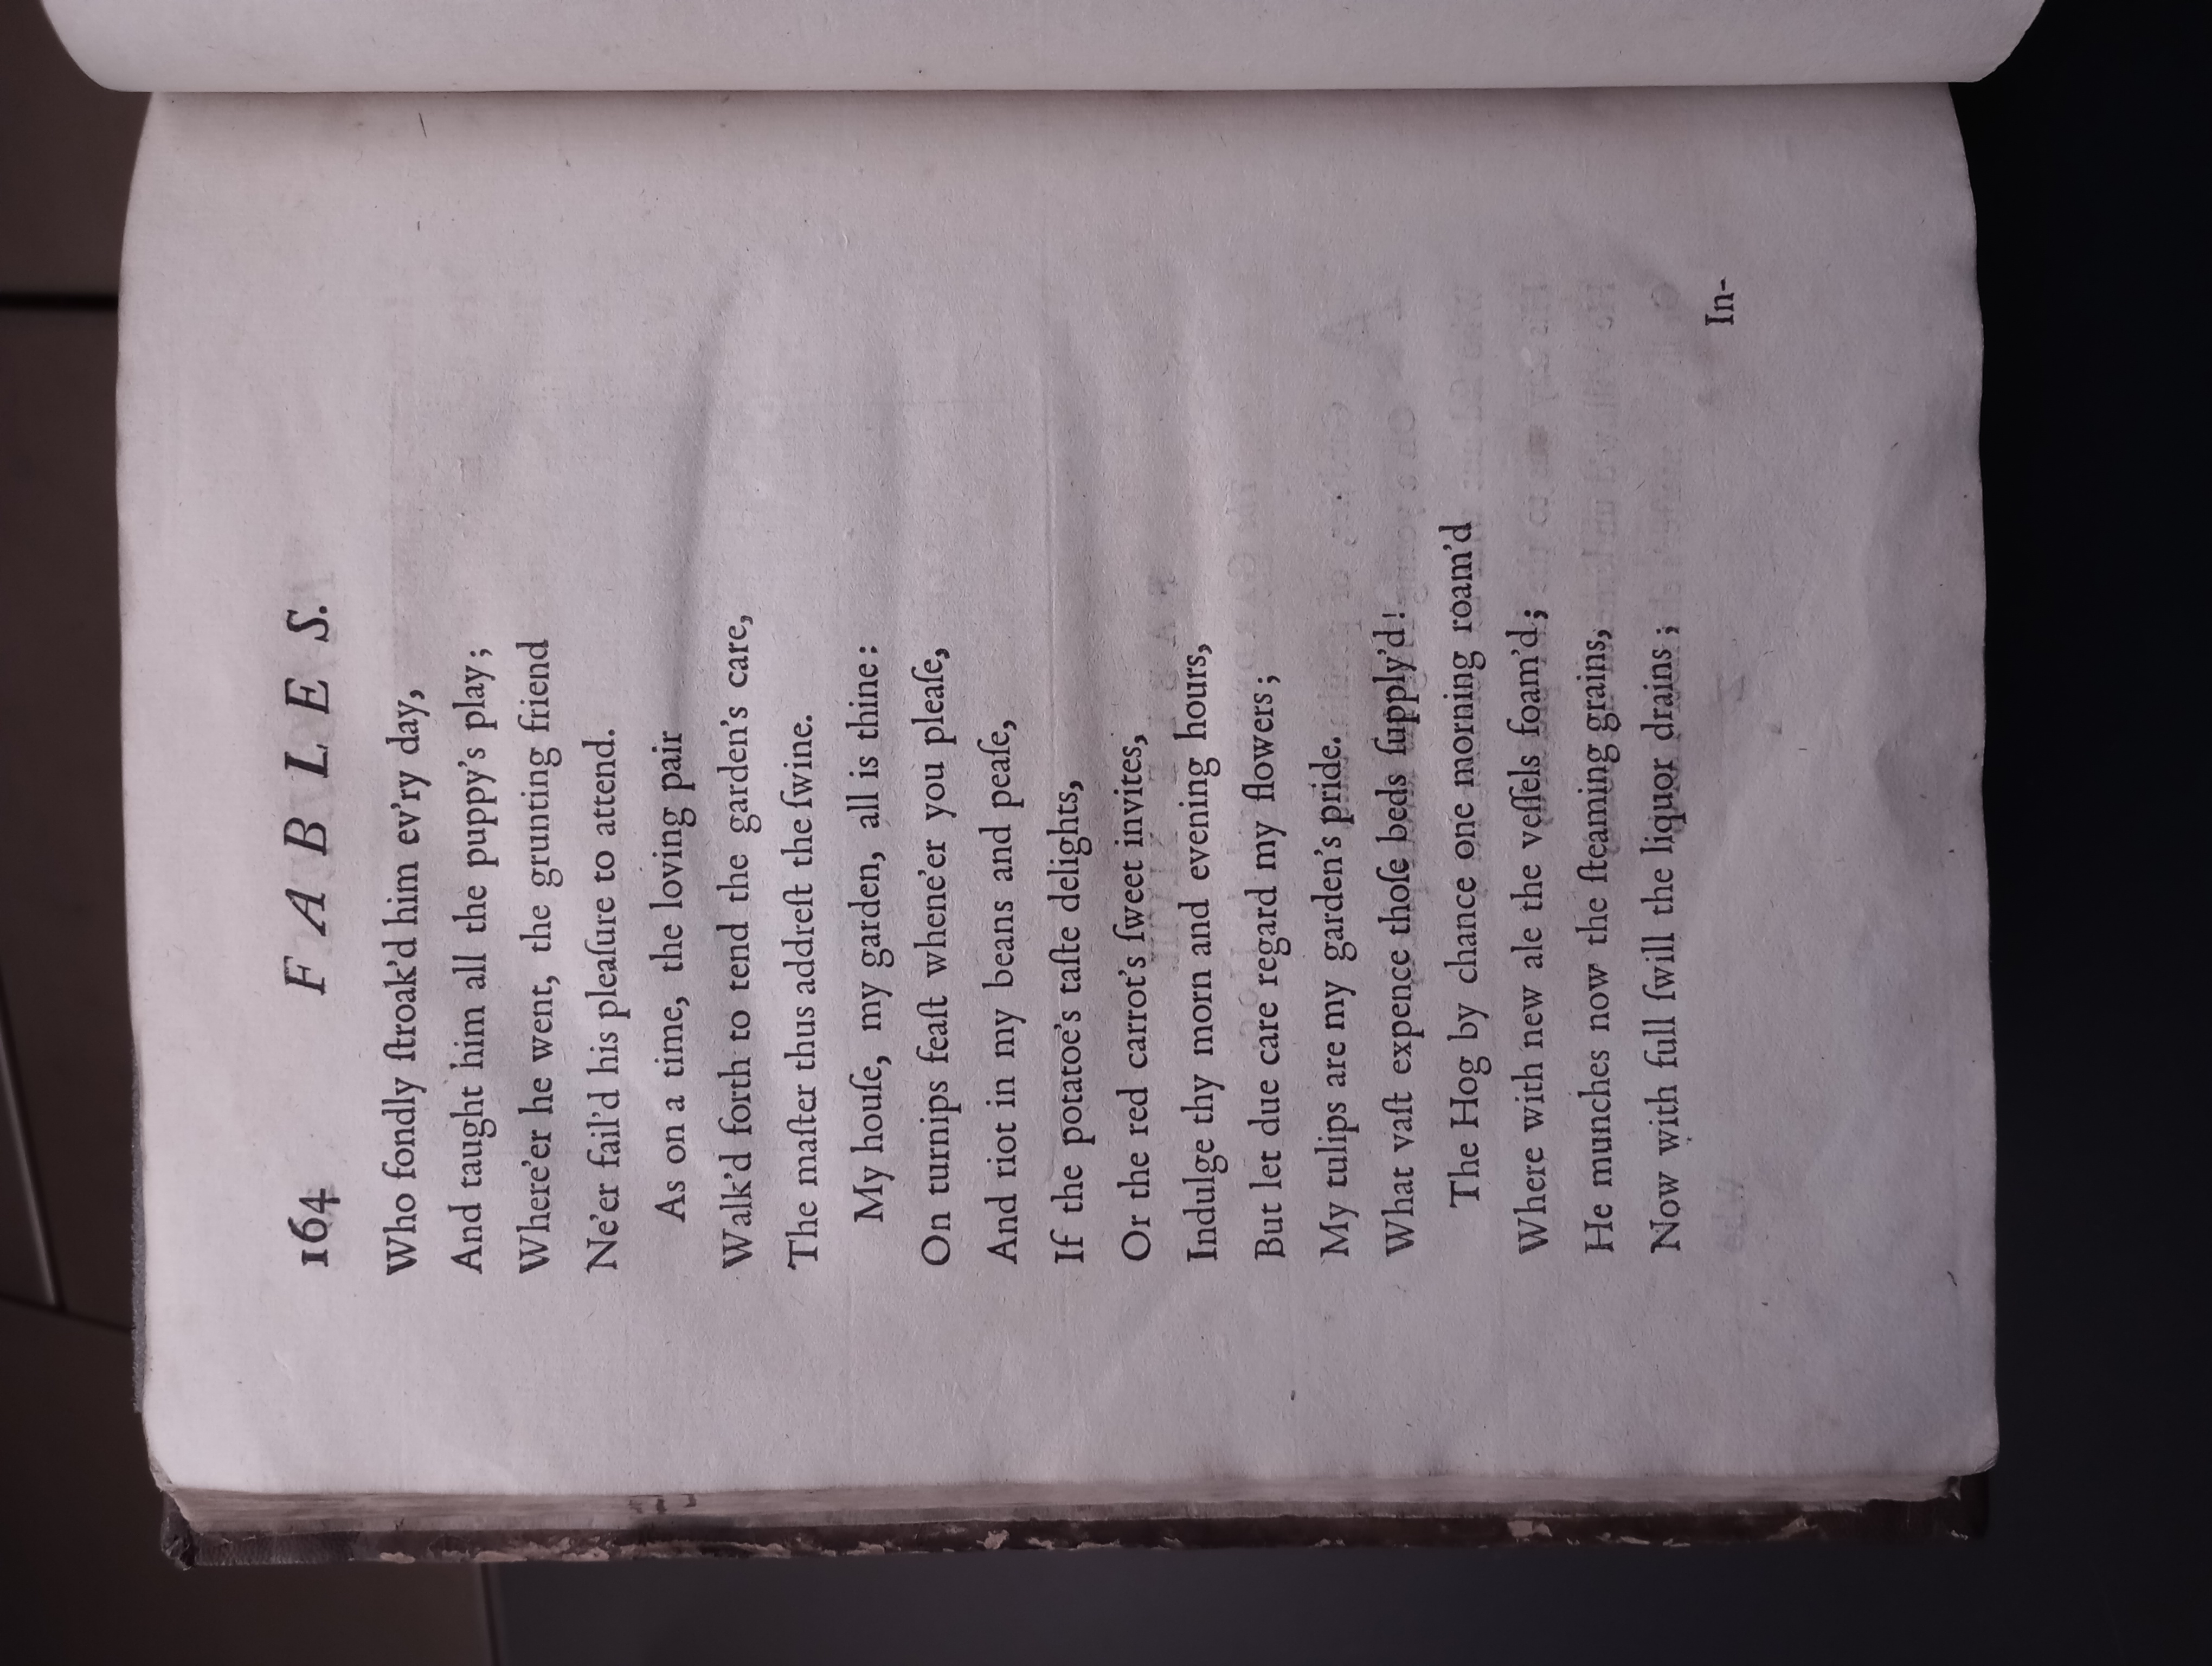 164 FABLES.
Who fondly ſtroak'd him ev'ry day,
And taught him all the puppy's play;
Where'er he went, the grunting friend
Ne'er fail'd his pleaſure to attend.
As on a time, the loving pair
Walk'd forth to tend the garden's care,
The maſter thus addreſt the ſwine.
My houſe, my garden, all is thine:
On turnips feaſt whene'er you pleaſe,
And riot in my beans and peaſe,
If the potatoe's taſte delights,
Or the red carrot's ſweet invites,
Indulge thy morn and evening hours,
But let due care regard my flowers;
My tulips are my garden's pride.
What vaſt expence thoſe beds ſupply'd!
The Hog by chance one morning roam'd
Where with new ale the veſſels foam'd;
He munches now the ſteaming grains,
Now with full ſwill the liquor drains;
In-